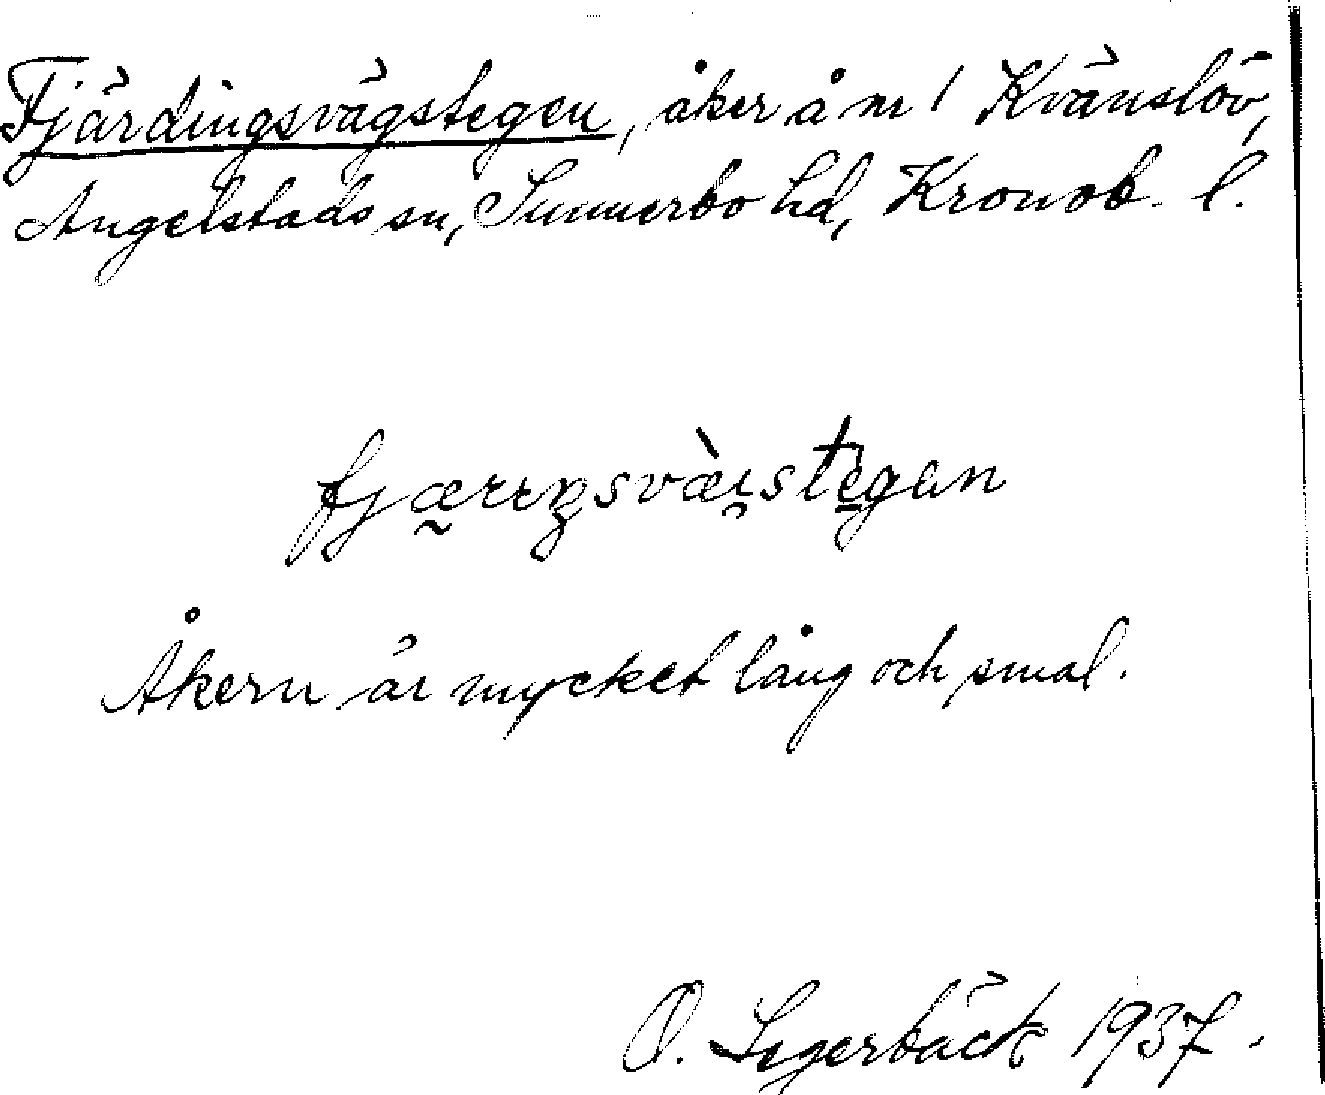 Fjärdingsvägstegen, åker å nr 1 Kvänslöv,
Angelstads sn, Sunnerbo hd, Kronob. l.
Åkern är mycket lång och smal.
O. Segerbäck 1937.